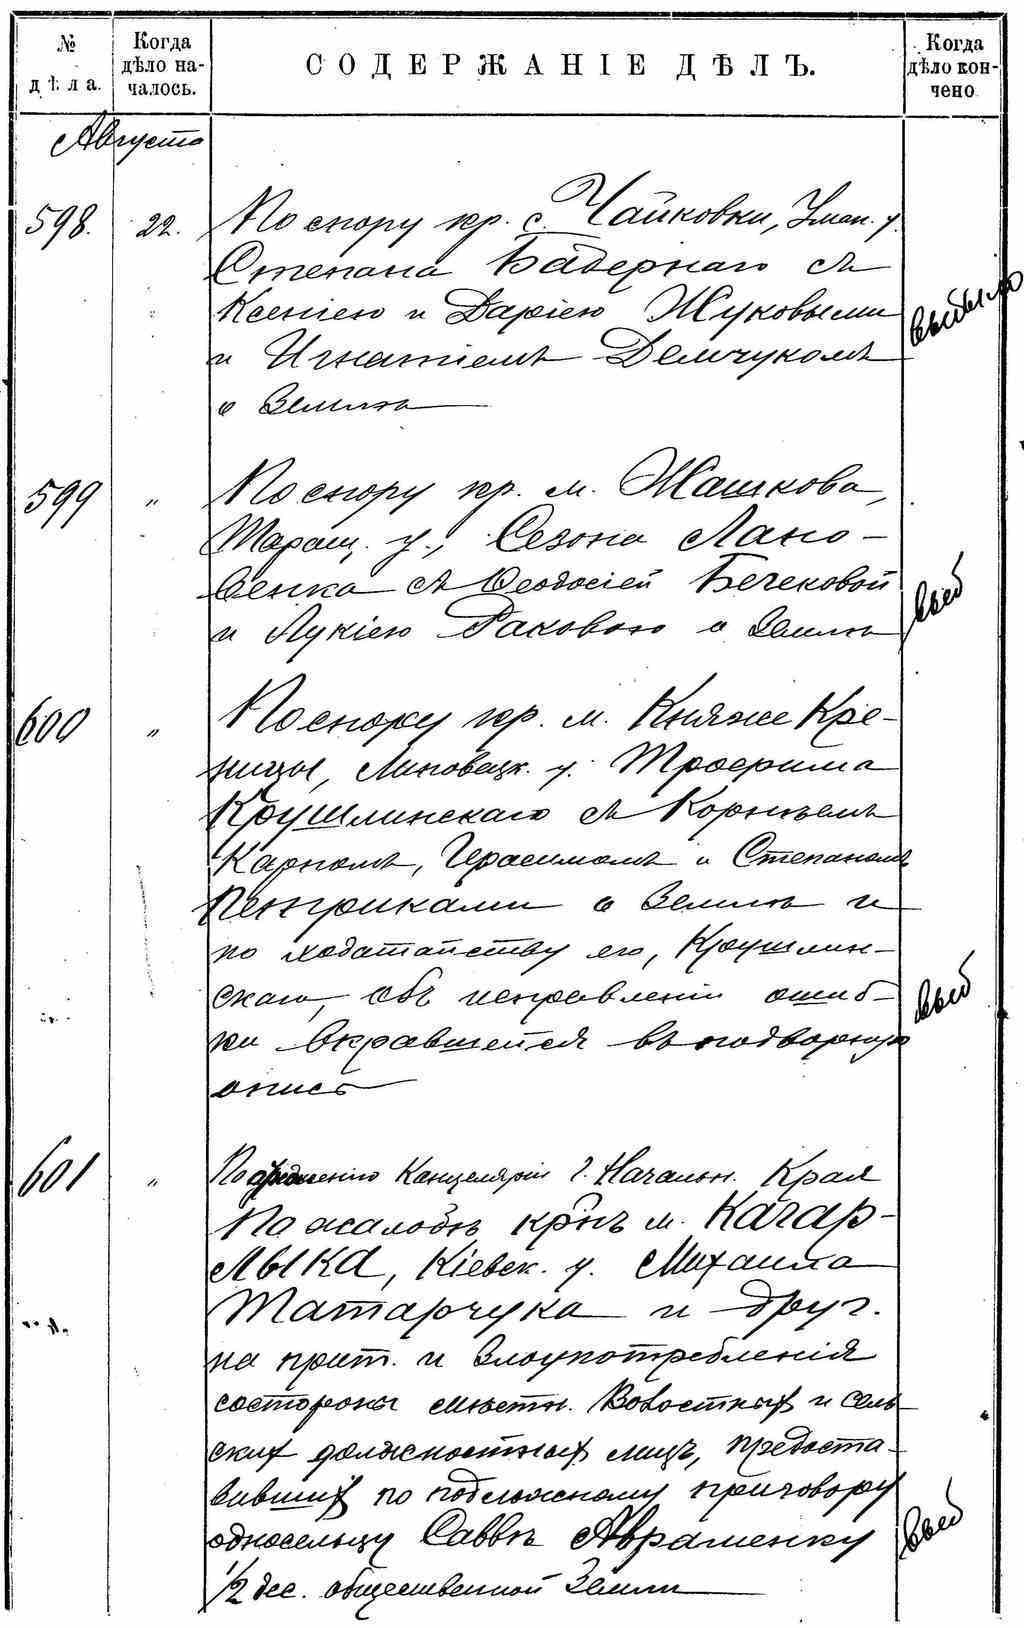 № дѣла.
Когда дѣло началось.
СОДЕРЖАНІЕ ДѢЛЪ.
Когда дѣло кончено
Августа
598. 22. По спору кр. с. Чайковки, Уман. у.
Степана Бадернаго съ
Ксеніею и Даріею Жуковыми
и Игнатіемъ Демчукомъ
о землѣ
выбыло
599 " По спору кр. м. Жашкова,
Таращ. у., Сезона Лано-
венка съ Ѳеодосіей Бечековой
и Лукіею Раковою о землѣ
выб
600 " По спору кр. м. Княже Кре-
ницы, Липовецк. у. Трофима
Крушлинскаго съ Корнѣемъ
Карпомъ, Герасимомъ и Степаномъ
Пентриками о землѣ и
по ходатайству его, Крушлин-
скаго, объ исправленіи ошиб-
ки вкравшейся въ подворную
опись
выб
601 " По Канцеляріи Г. Начальн. Края
По жалобѣ кр҃нъ м. Кагар-
лыка, Кіевск. у. Михаила
Татарчука и друг.
на прит. и злоупотребленія
состороны мѣстн. Волостных и сель-
ских должностных лицъ, предоста-
вивших по подложному приговору
односельцу Саввѣ Авраменку
1/2 дес. общественной земли
выб